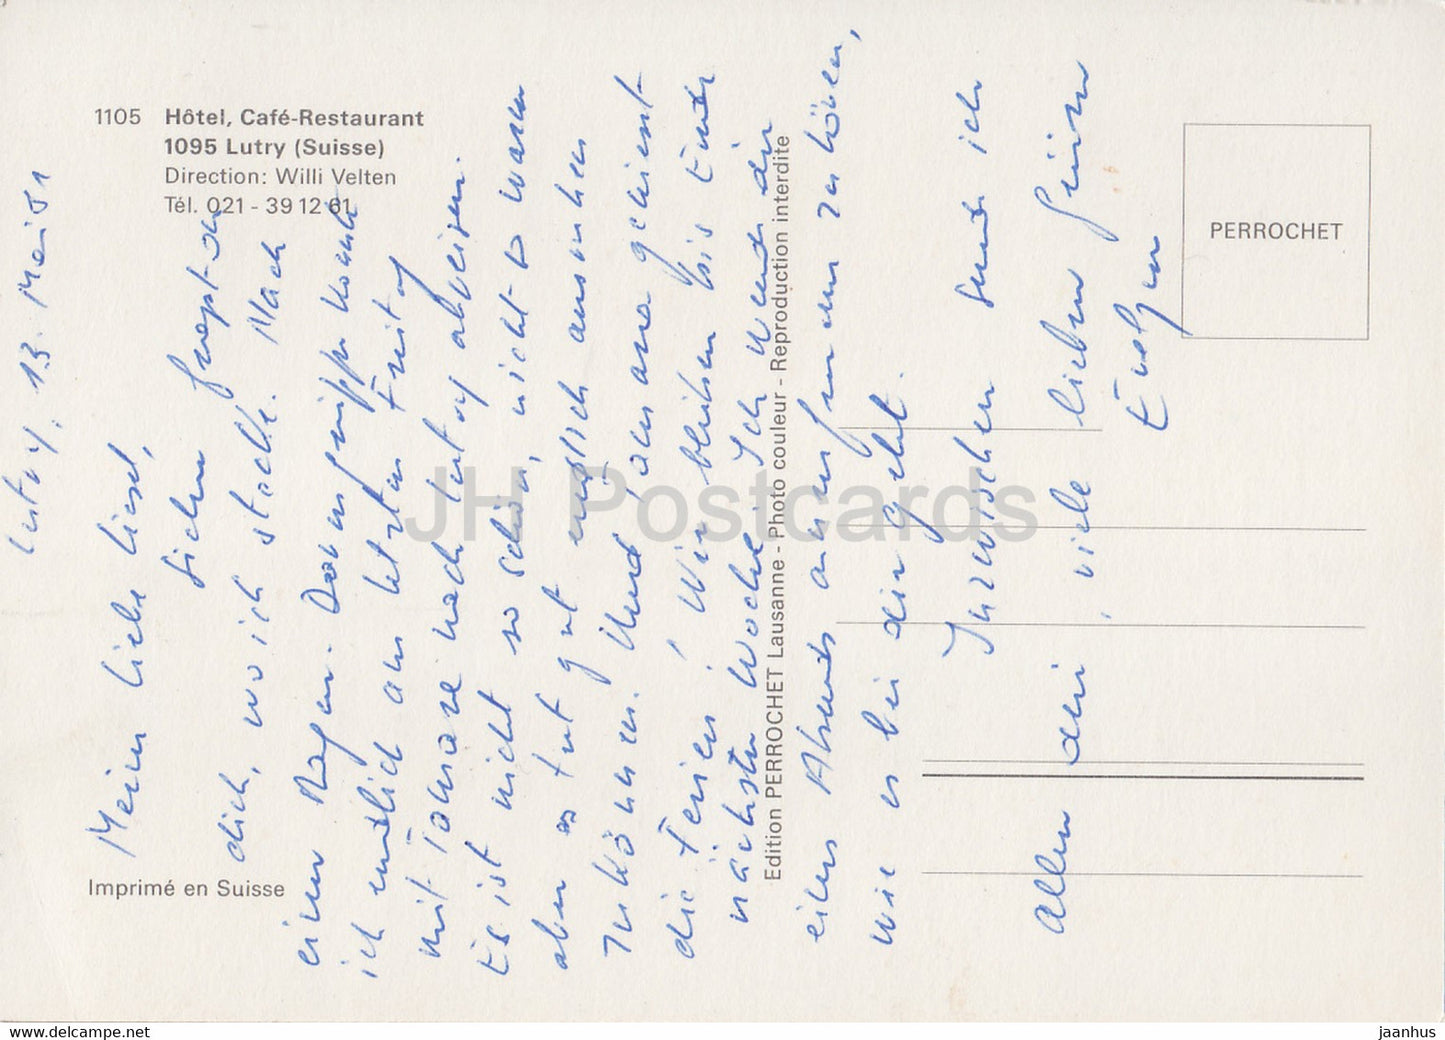 1105 Hôtel, Café-Restaurant
1095 Lutry (Suisse)
Direction: Willi Velten
Tél. 021 - 39 12 61
PERROCHET
Imprimé en Suisse
Edition PERROCHET Lausanne - Photo couleur - Reproduction interdite
Lutry, 13. Mai 81
Meine liebe Liesel,
sicher fragst du
dich, wo ich stecke. Nach
einer Magen- Darmgrippe konnte
ich endlich am letzten Freitag
mit nach Lutry abreisen.
Es ist nicht so schön, nicht so warm
aber es tut gut endlich
zu können. Und
die Ferien! Wir bleiben bis Ende
nächster Woche. Ich werde dir
eines Abends anrufen um zu hören,
wie es bei dir geht.
Inzwischen sende ich
allen dein, viele lieben Grüsse
Evelyne
JH Postcards
https://jhpostcards.com
jaanhus